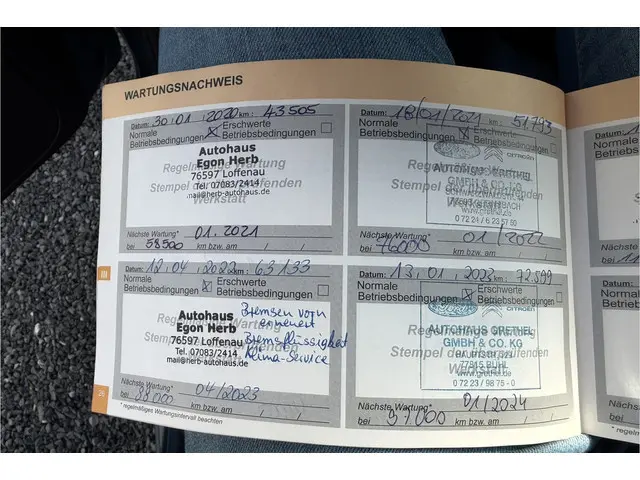 WARTUNGSNACHWEIS
Datum: 30.01.2020 km: 43505
Normale Betriebsbedingungen ☒ Erschwerte Betriebsbedingungen ☐
Regelmäßige Wartung
Stempel der ausführenden
Werkstatt
Autohaus
Egon Herb
76597 Loffenau
Tel. 07083/2414
mail@herb-autohaus.de
Nächste Wartung* 01.2021
bei 58500 km bzw. am / /
Datum: 18/01/2021 km: 51.793
Normale Betriebsbedingungen ☒ Erschwerte Betriebsbedingungen ☐
Regelmäßige Wartung
Stempel der ausführenden
Werkstatt
CITROËN
GMBH & CO. KG
0 72 24 / 6 23 57 50
Nächste Wartung* 01/2022
bei km bzw. am / /
Datum: 12.04.2022 km: 63133
Normale Betriebsbedingungen ☒ Erschwerte Betriebsbedingungen ☐
Regelmäßige Wartung
Stempel der ausführenden
Werkstatt
Autohaus
Egon Herb
76597 Loffenau
Tel. 07083/2414
mail@herb-autohaus.de
Bremsen vorn
erneuert
Bremsflüssigkeit
Klima-Service
Nächste Wartung* 04/2023
bei 88000 km bzw. am / /
Datum: 13.01.2023 km: 72.599
Normale Betriebsbedingungen ☒ Erschwerte Betriebsbedingungen ☐
Regelmäßige Wartung
Stempel der ausführenden
Werkstatt
CITROËN
AUTOHAUS GRETHEL
GMBH & CO. KG
77815 BÜHL
www.grethel.de
0 72 23 / 98 75 - 0
Nächste Wartung* 01/2024
bei 97000 km bzw. am / /
* regelmäßiges Wartungsintervall beachten
26